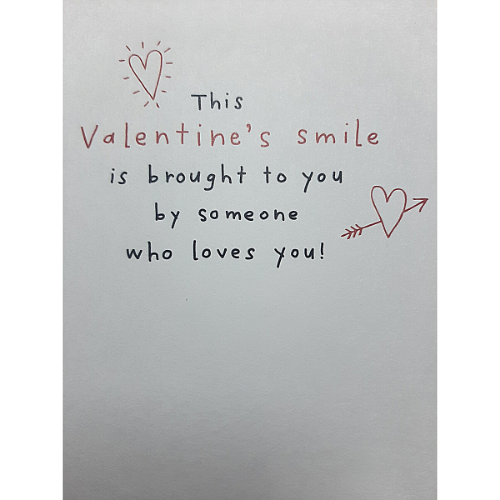 This
Valentine's smile
is brought to you
by someone
who loves you!